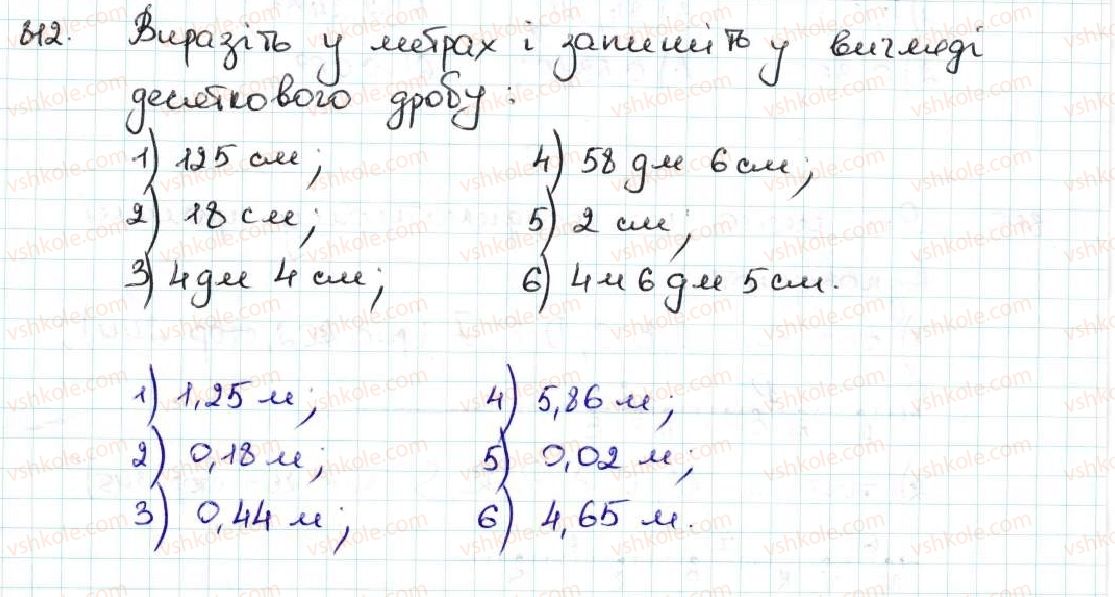 812. Виразіть у метрах і запишіть у вигляді
десяткового дробу:
1) 125 см; 4) 58 дм 6 см;
2) 18 см; 5) 2 см;
3) 4 дм 4 см; 6) 4 м 6 дм 5 см.
1) 1,25 м; 4) 5,86 м;
2) 0,18 м; 5) 0,02 м;
3) 0,44 м; 6) 4,65 м.